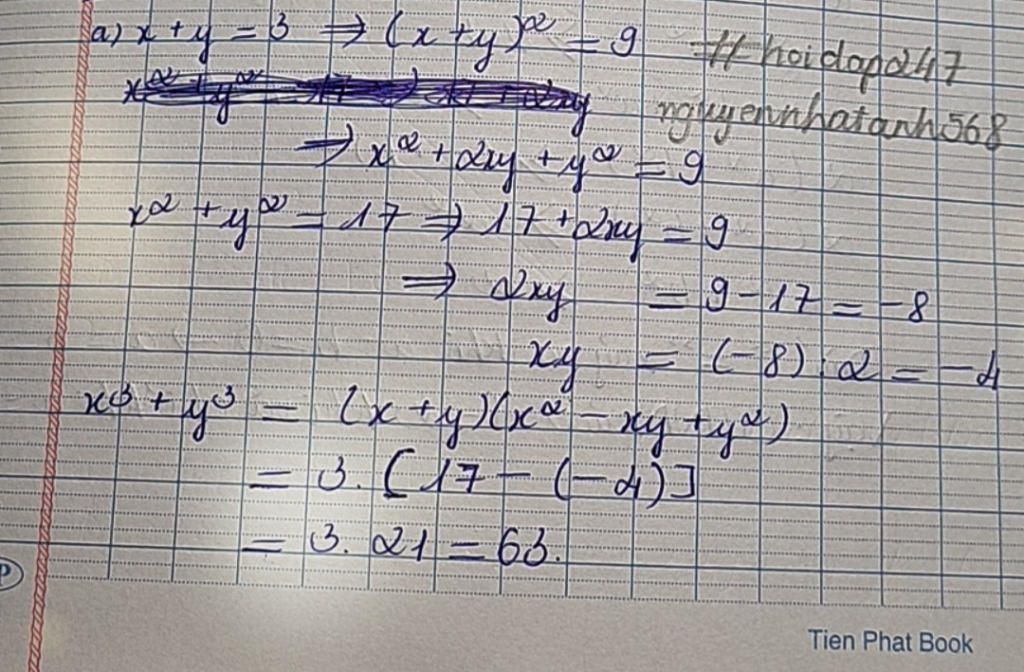 a) x + y = 3 ⇒ (x + y)² = 9 # hoidap247
x² + y² = 17 ⇒ 17 + 2xy nguyennhatanh568
⇒ x² + 2xy + y² = 9
x² + y² = 17 ⇒ 17 + 2xy = 9
⇒ 2xy = 9 - 17 = -8
xy = (-8) : 2 = -4
x³ + y³ = (x + y)(x² - xy + y²)
= 3. [17 - (-4)]
= 3. 21 = 63.
Tien Phat Book